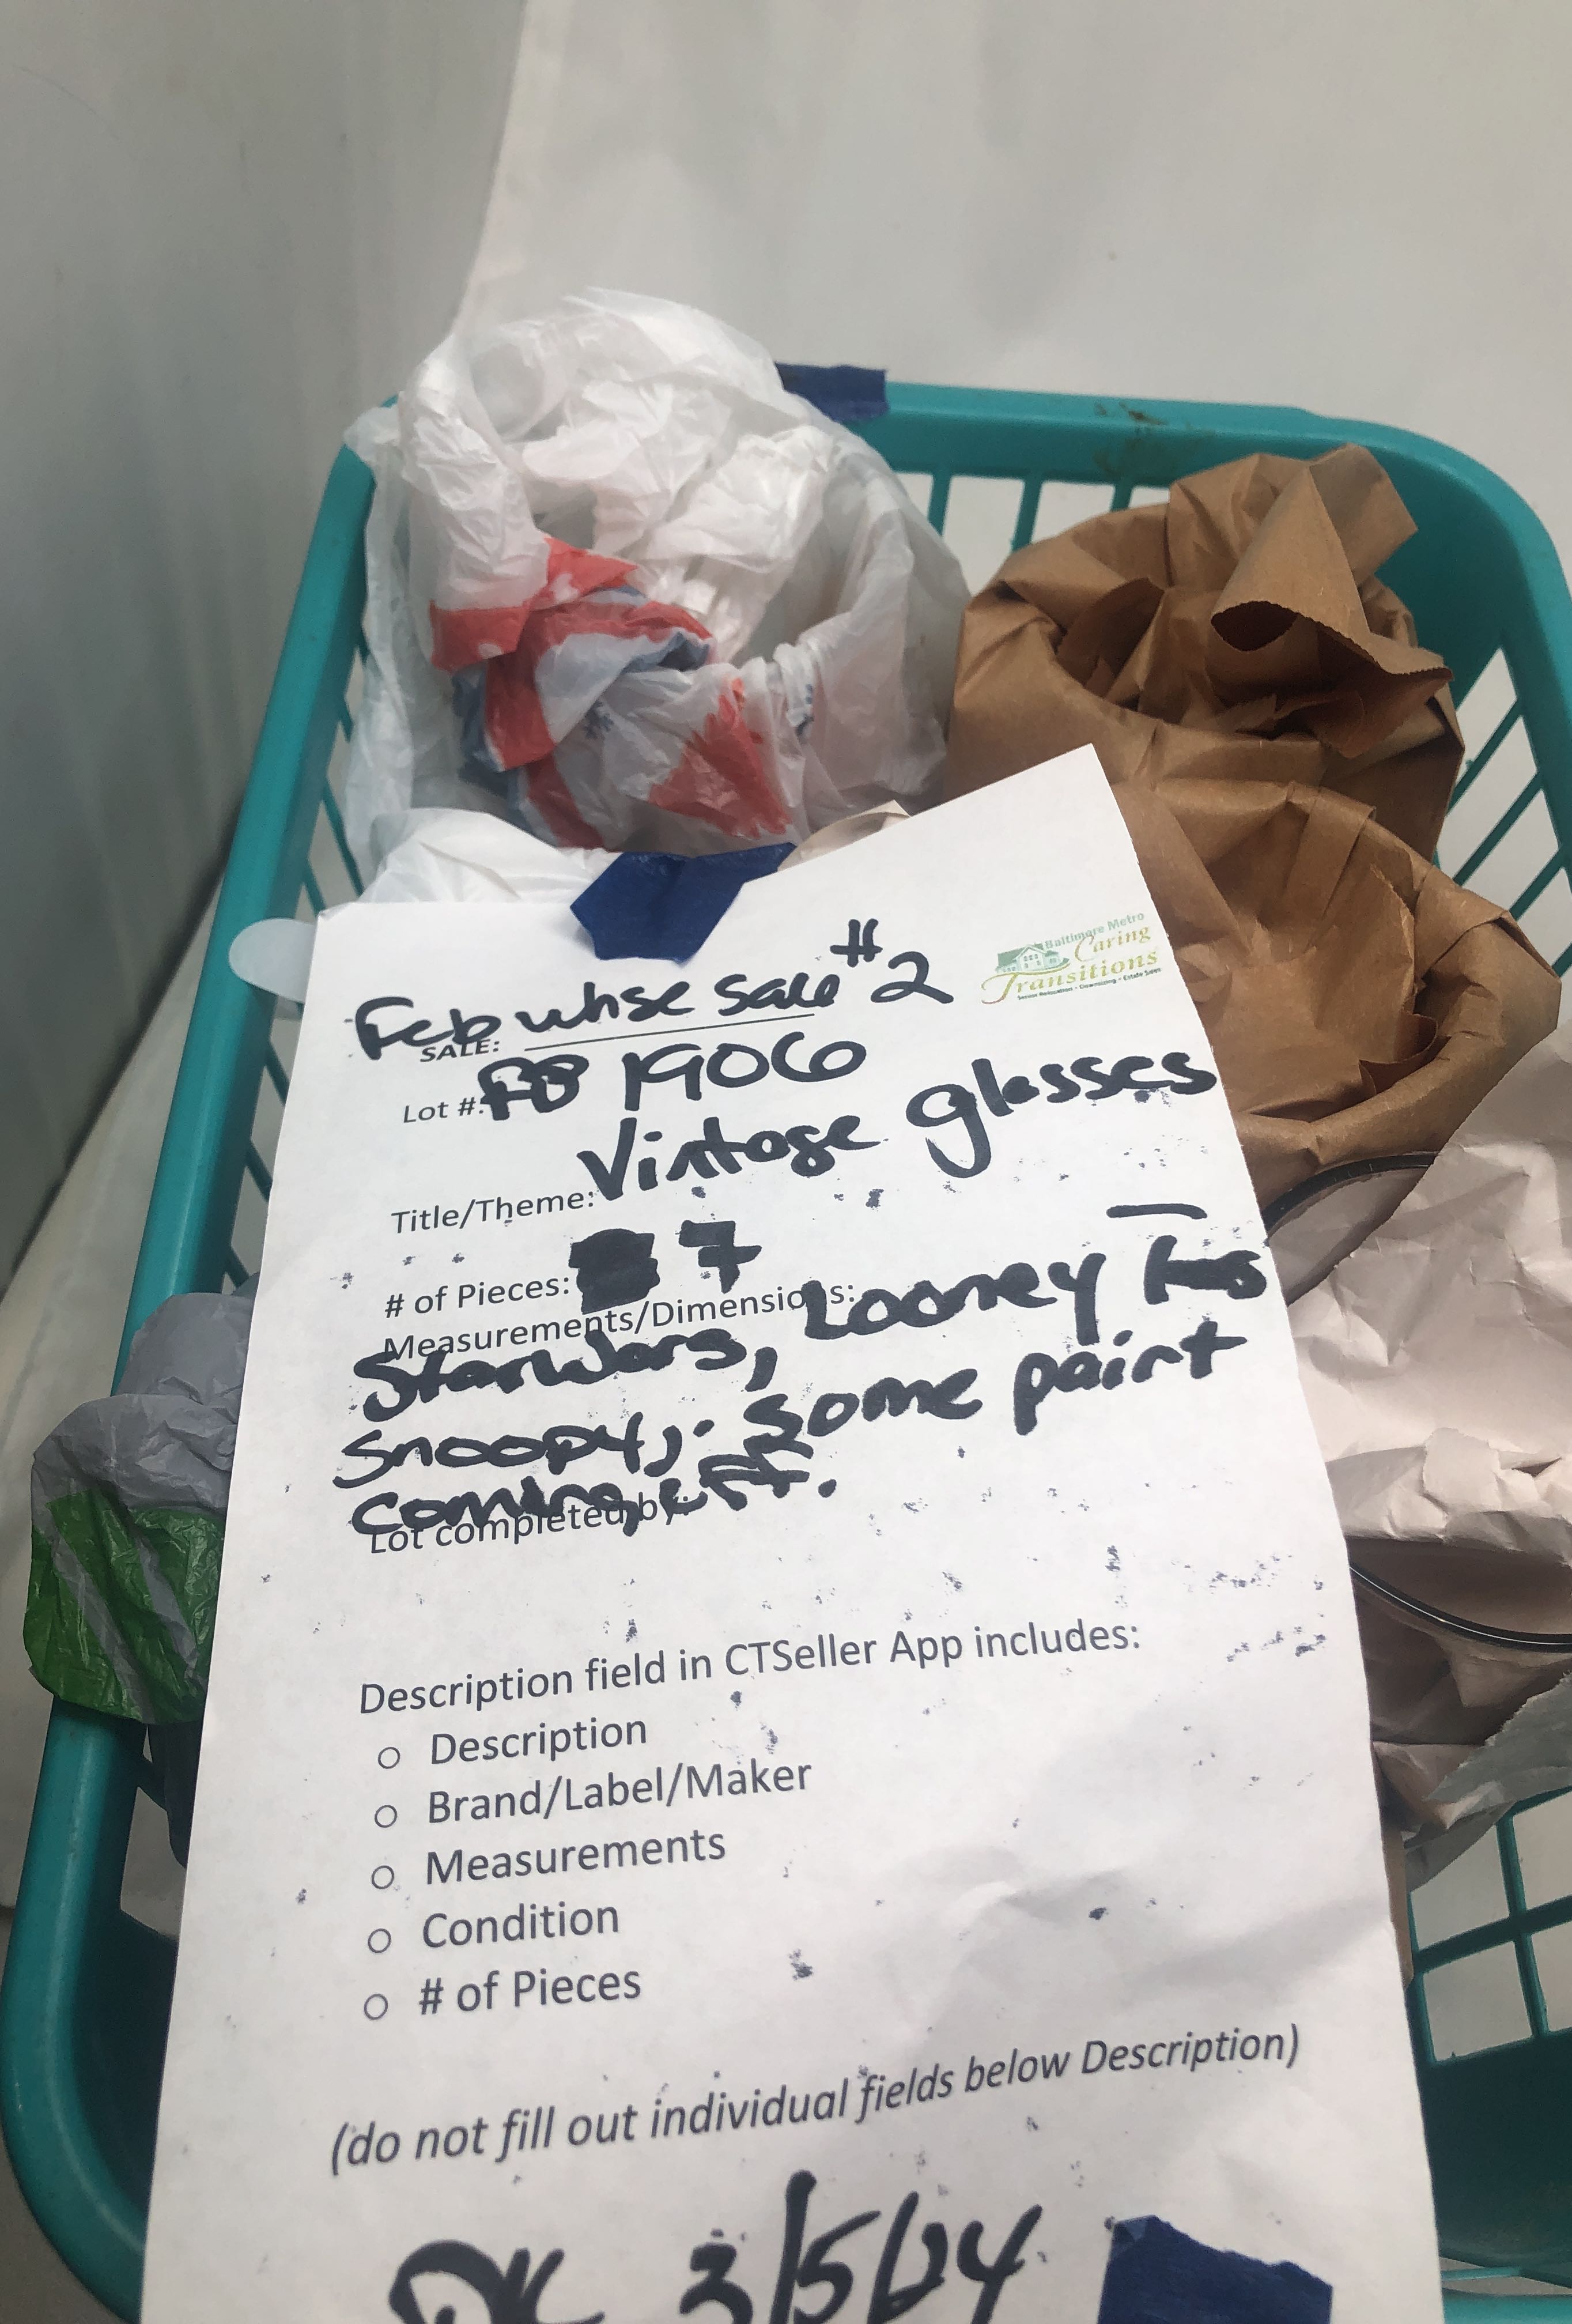 Baltimore Metro
Caring
Transitions
Senior Relocation • Downsizing • Estate Sales
Feb whse sale #2
SALE:
Lot #: FB 1906
Title/Theme: Vintage glasses
# of Pieces: 7
Measurements/Dimensions:
Starwars, Looney
Snoopy, . some paint
coming off.
Lot completed by:
Description field in CTSeller App includes:
○ Description
○ Brand/Label/Maker
○ Measurements
○ Condition
○ # of Pieces
(do not fill out individual fields below Description)
DK 3/5/24